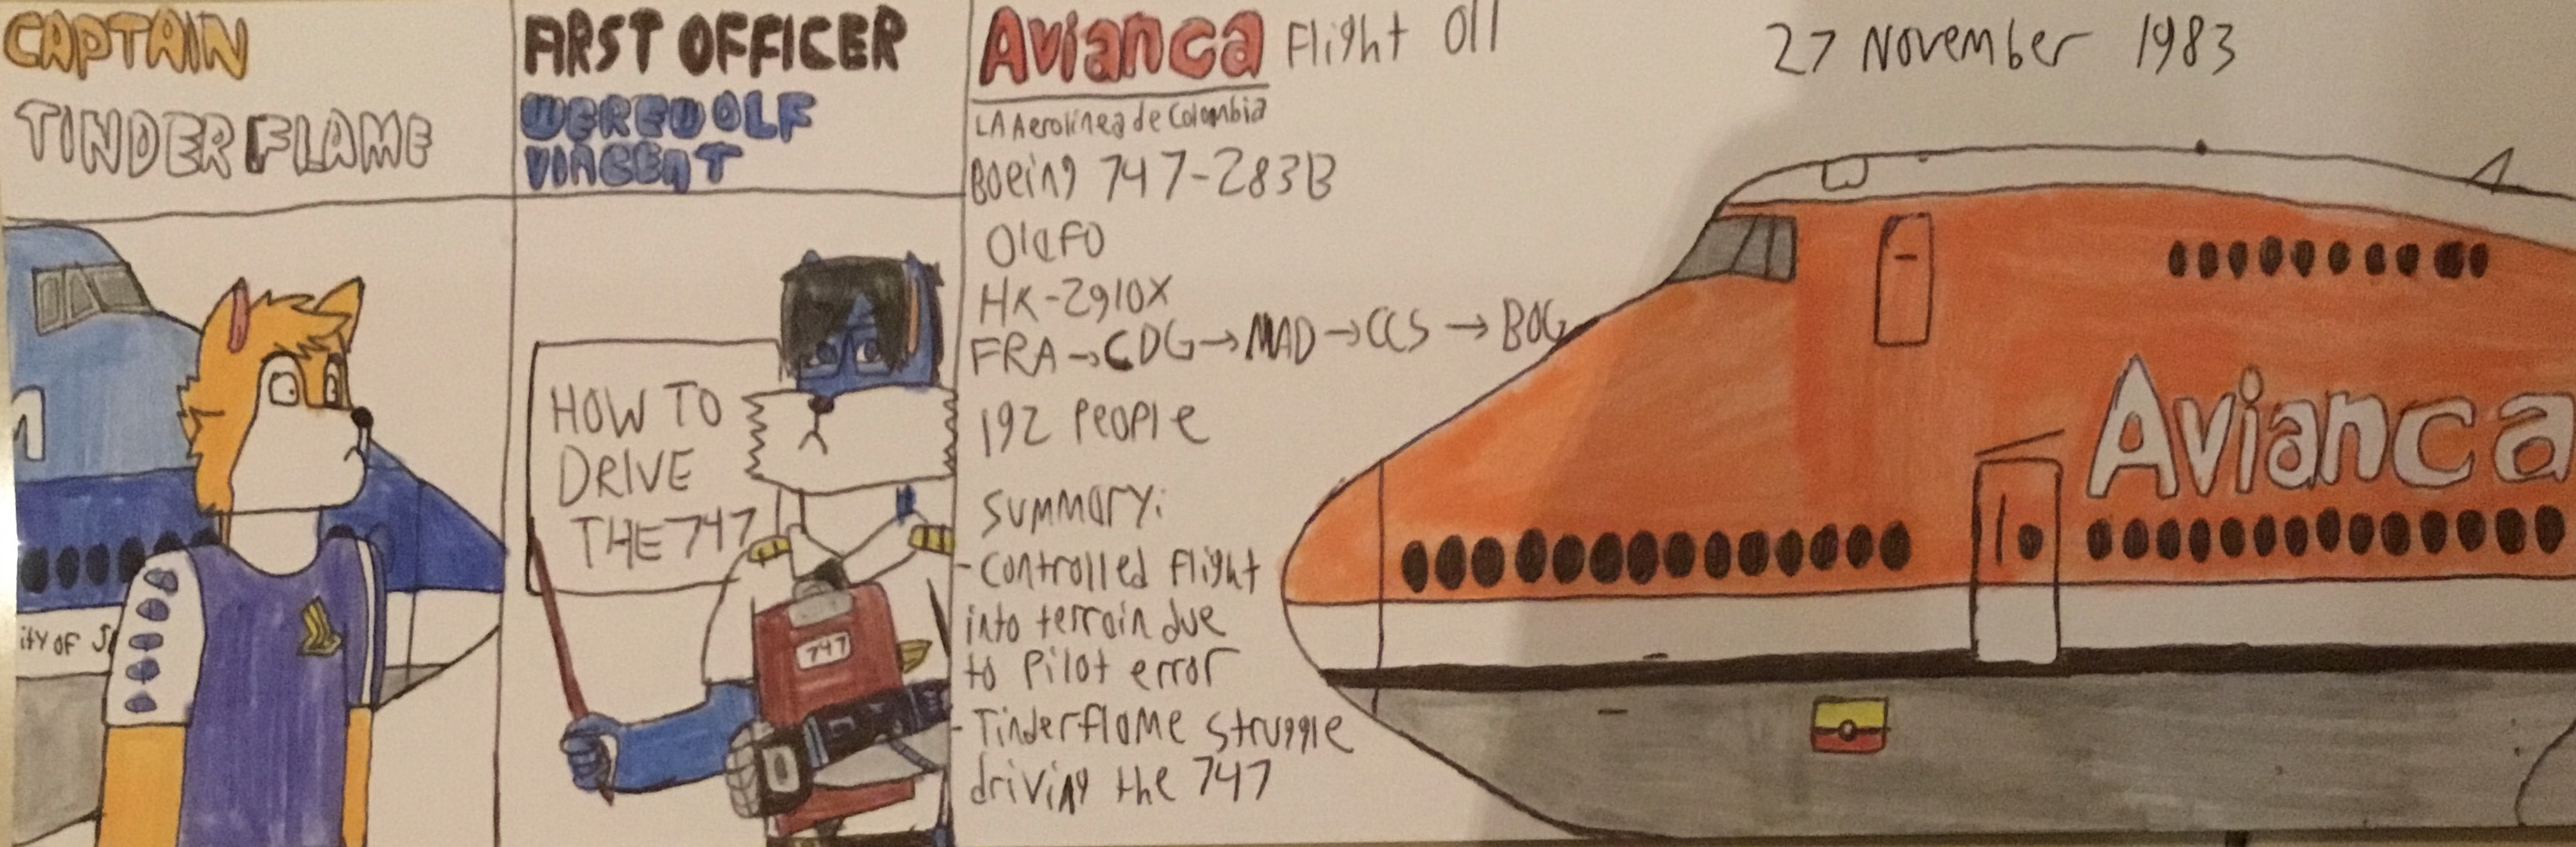 CAPTAIN
TINDERFLAME
FIRST OFFICER
WEREWOLF
VINCENT
HOW TO
DRIVE
THE 747
747
Avianca Flight 011
LA Aerolinea de Colombia
Boeing 747-283B
Olafo
HK-2910X
FRA→CDG→MAD→CCS→BOG
192 People
Summary:
-Controlled flight
into terrain due
to Pilot error
-Tinderflame struggle
driving the 747
27 November 1983
Avianca
ity OF